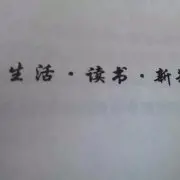 生活·读书·新